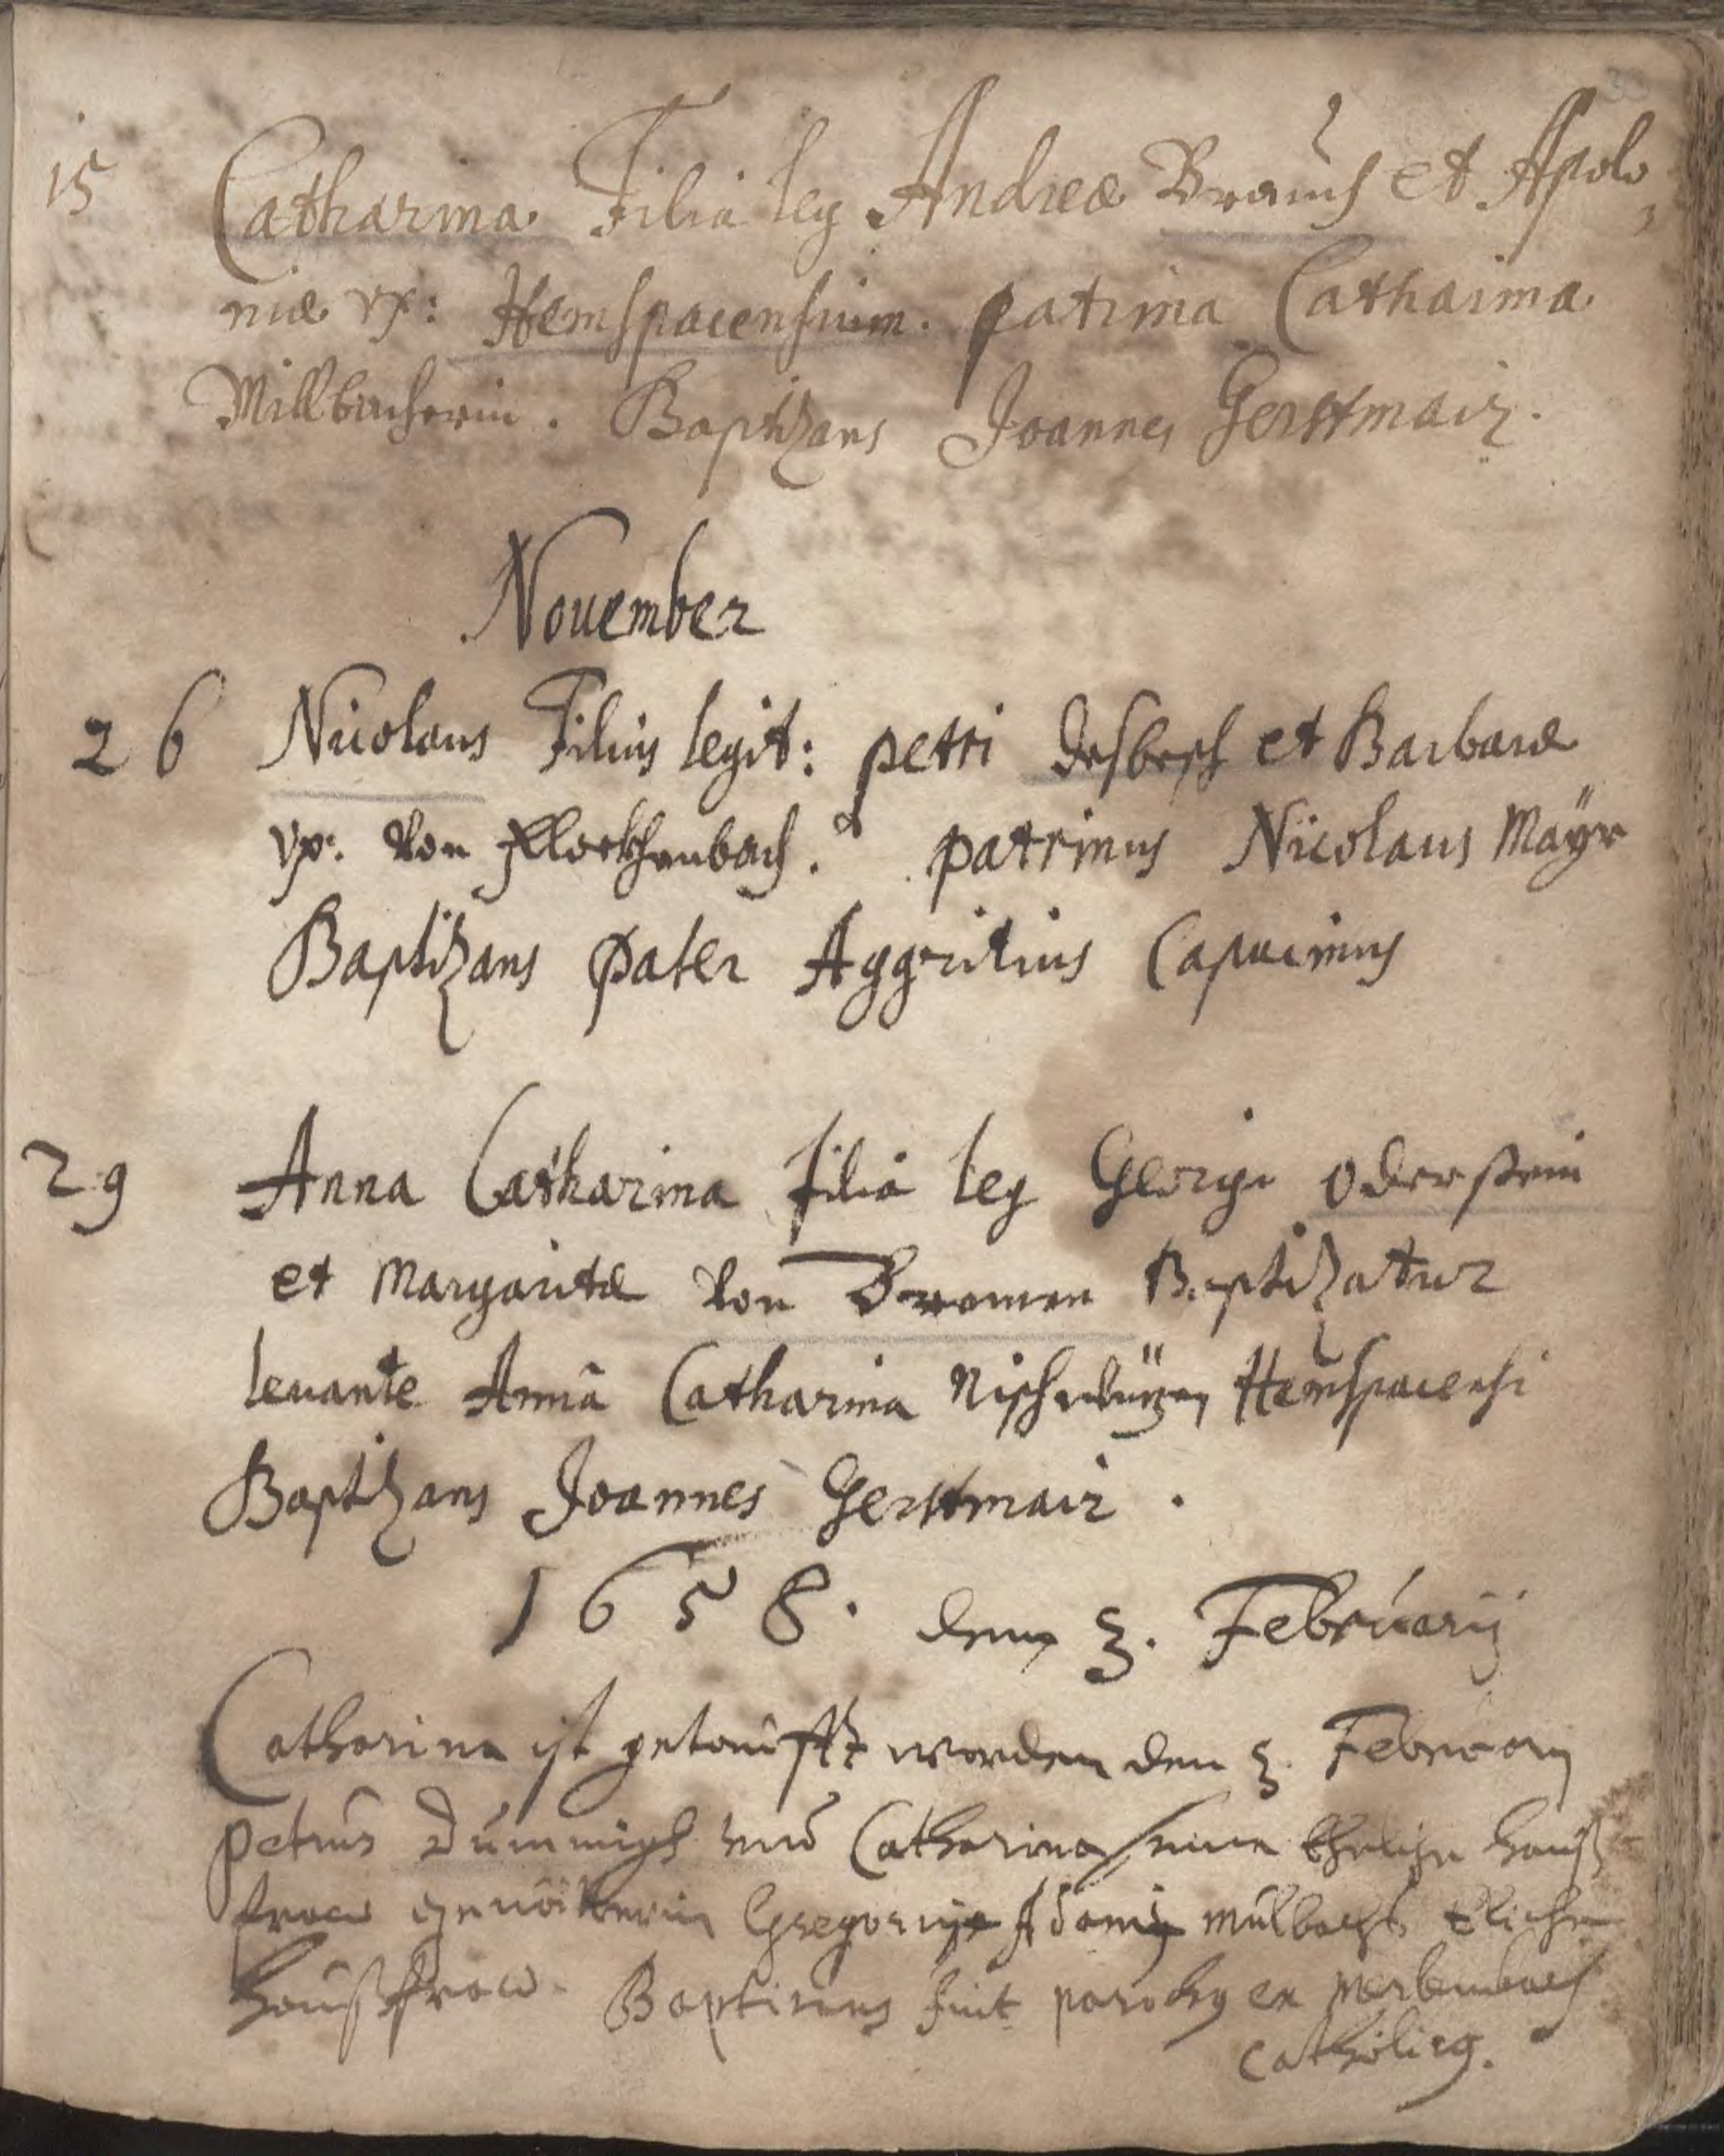 15 Catharina Filia leg Andreæ Brauch et Apolo,
niæ vx: Hemspacensium. patrina Catharina
Millbacherin. Baptizans Joannes Gerstmair.
November
26 Nicolaus Filius legit: petri et Barbaræ
vx. von Flockhenbach. patrinus Nicolaus Mäyr
Baptizans pater Aggritius Capucinus
29 Anna Catharina filia leg Georgii Oderstein
et Margaritæ von Bremen Baptizatur
levante Annâ Catharina Hemspacensi
Baptizans Joannes Gerstmair.
1658. denn 3. Februarij
Catharina ist getaufft worden den 3. Februarij
petrus Dümmigh und Catharina seine Eheliche hauß
fraw gevätterin Gregorij Adamj mülbachs Eliche
haußfraw. Baptizans fuit parochg ex
catholicg.